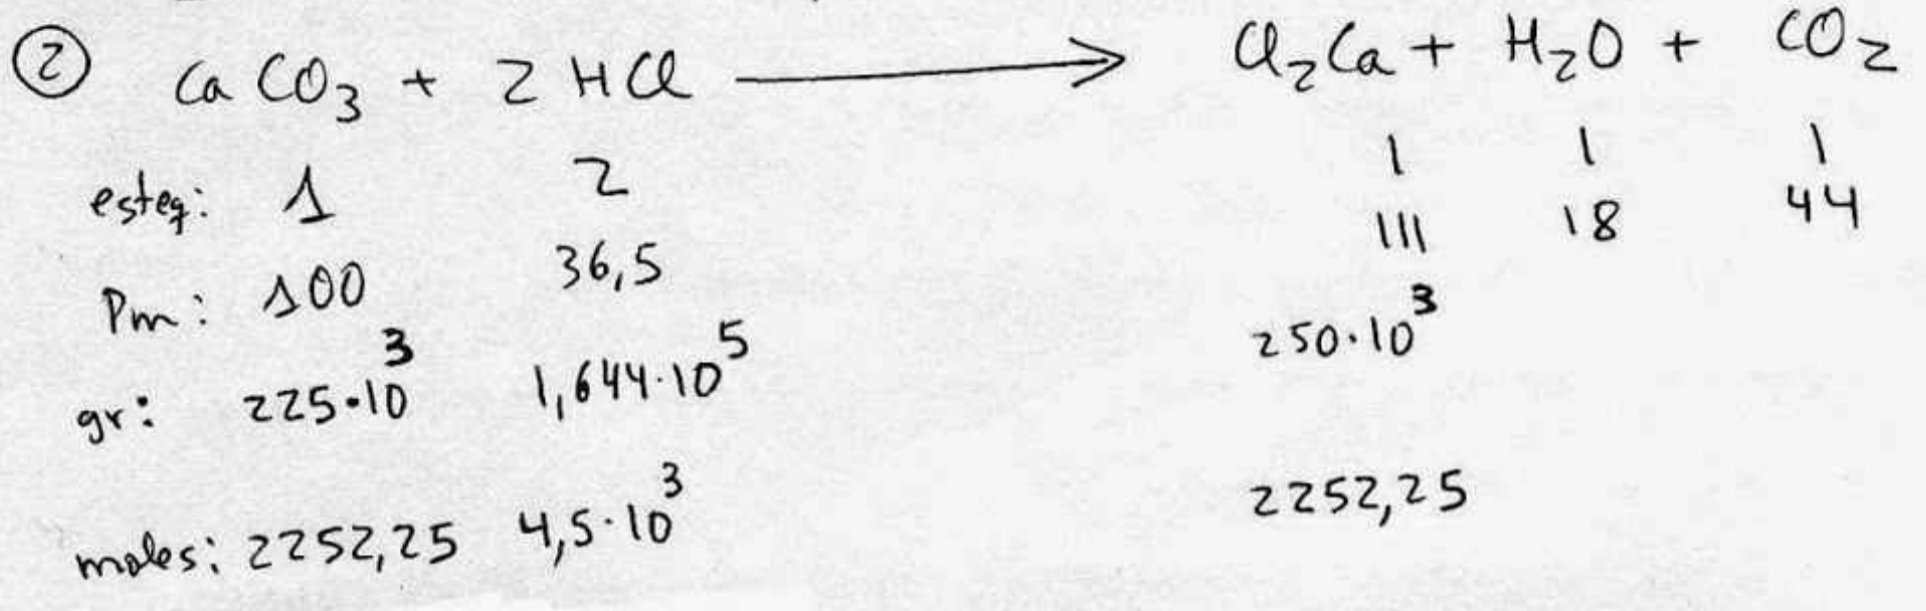 ② CaCO₃ + 2 HCl ⟶ Cl₂Ca + H₂O + CO₂
esteq: 1 2 1 1 1
Pm: 100 36,5 111 18 44
gr: 225·10³ 1,644·10⁵ 250·10³
moles: 2252,25 4,5·10³ 2252,25